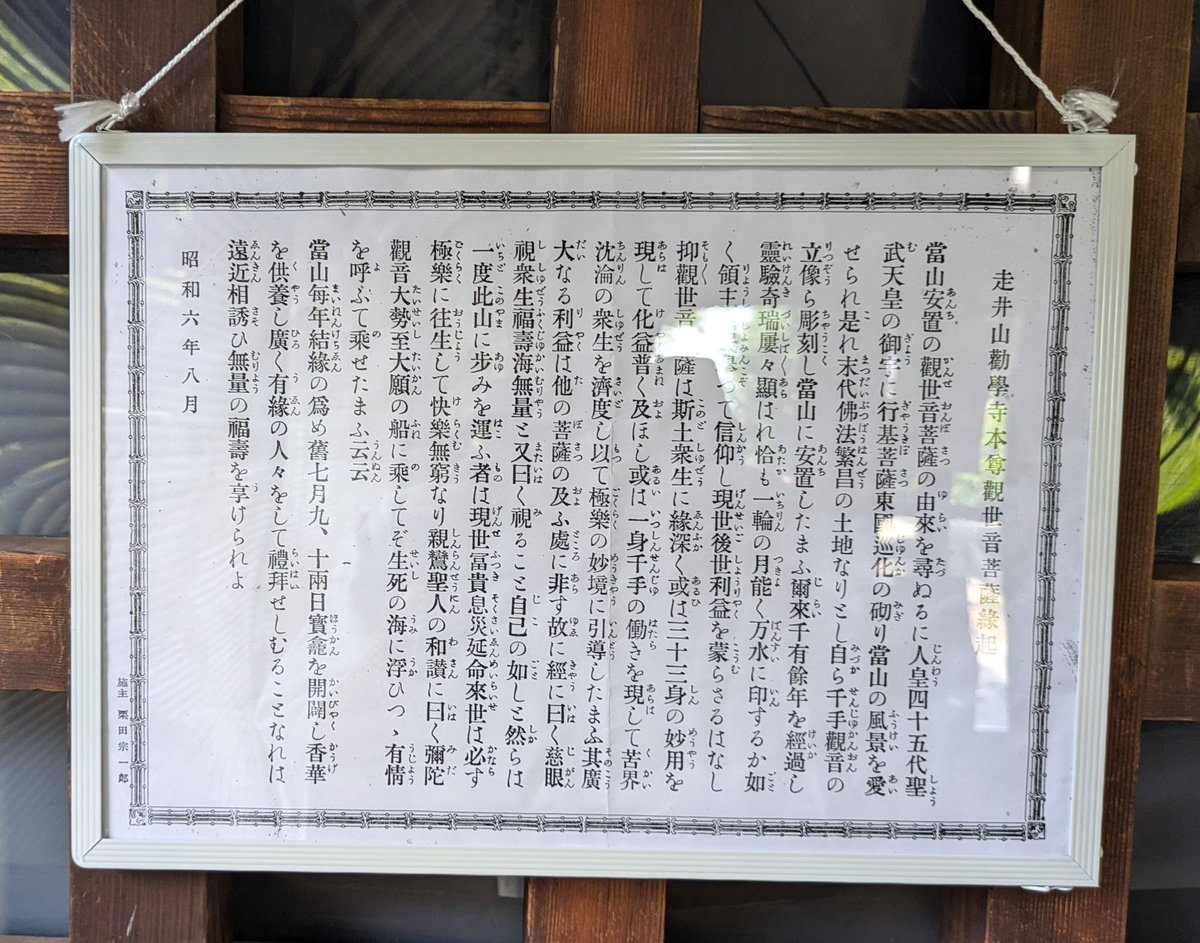 走井山勸學寺本尊觀世音菩薩緣起
當山安置の觀世音菩薩の由來を尋ぬるに人皇四十五代聖
武天皇の御宇に行基菩薩東國巡化の砌り當山の風景を愛
せられ是れ末代佛法繁昌の土地なりとし自ら千手觀音の
立像ら彫刻し當山に安置したまふ爾來千有餘年を經過し
靈驗奇瑞屢々顯はれ恰も一輪の月能く万水に印するか如
く領主 つて信仰し現世後世利益を蒙らさるはなし
抑觀世音 薩は斯土衆生に緣深く或は三十三身の妙用を
現して化益普く及ほし或は一身千手の働きを現して苦界
沈淪の衆生を濟度し以て極樂の妙境に引導したまふ其廣
大なる利益は他の菩薩の及ふ處に非す故に經に曰く慈眼
視衆生福壽海無量と又曰く視ること自己の如しと然らは
一度此山に步みを運ふ者は現世富貴息災延命來世は必す
極樂に往生して快樂無窮なり親鸞聖人の和讃に曰く彌陀
觀音大勢至大願の船に乘してぞ生死の海に浮ひつゝ有情
を呼ぶて乘せたまふ云云
當山每年結緣の爲め舊七月九、十兩日寶龕を開闢し香華
を供養し廣く有緣の人々をして禮拜せしむることなれは
遠近相誘ひ無量の福壽を享けられよ
昭和六年八月
施主 栗田宗一郎